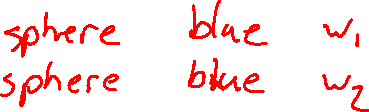 sphere blue w₁
sphere blue w₂